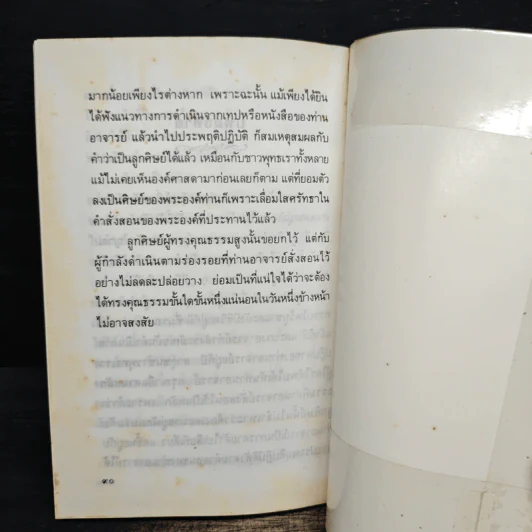 มากน้อยเพียงไรต่างหาก เพราะฉะนั้น แม้เพียงได้ยิน
ได้ฟังแนวทางการดำเนินจากเทปหรือหนังสือของท่าน
อาจารย์ แล้วนำไปประพฤติปฏิบัติ ก็สมเหตุสมผลกับ
คำว่าเป็นลูกศิษย์ได้แล้ว เหมือนกับชาวพุทธเราทั้งหลาย
แม้ไม่เคยเห็นองค์ศาสดามาก่อนเลยก็ตาม แต่ที่ยอมตัว
ลงเป็นศิษย์ของพระองค์ท่านก็เพราะเลื่อมใสศรัทธาใน
คำสั่งสอนของพระองค์ที่ประทานไว้แล้ว
ลูกศิษย์ผู้ทรงคุณธรรมสูงนั้นขอยกไว้ แต่กับ
ผู้กำลังดำเนินตามร่องรอยที่ท่านอาจารย์สั่งสอนไว้
อย่างไม่ลดละปล่อยวาง ย่อมเป็นที่แน่ใจได้ว่าจะต้อง
ได้ทรงคุณธรรมขั้นใดขั้นหนึ่งแน่นอนในวันหนึ่งข้างหน้า
ไม่อาจสงสัย